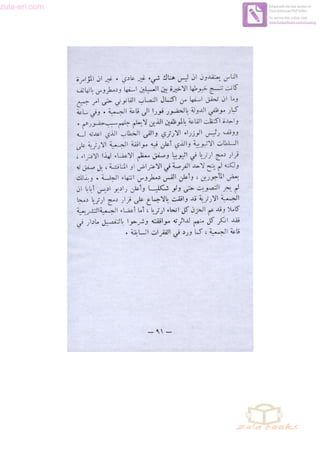 zula-eri.com
الناس يعتقدون ان ليس هناك شيء غير عادي ، غير ان المؤامرة
كانت تنسج خيوطها الاخيرة بين العميلين اسفها ودمطروس بالهاتف
وما ان تحقق اسفها من اكتمال النصاب القانوني حتى امر جميع
كبار موظفي الدولة بالحضور فورا الى قاعة الجمعية ، وفي ساعة
واحدة اكتظت القاعة بالموظفين الذين لايعلم جلهم سبب حضورهم .
ووقف رئيس الوزراء الارتري والقى الخطاب الذي اعدته لـه
السلطات الاثيوبية والذي أعلن فيه موافقة الجمعية الارترية على
قرار دمج ارتريا في اثيوبيا وصفق معظم الاعضاء لهذا الافتراء ،
ولكنه لم يتح لاحد الفرصة في الاعتراض او المناقشة ، بل صفق له
بعض المأجورين ، وأعلن القس دمطروس انتهاء الجلسة . وبذلك
لم يجر التصويت حتى ولو شكليـا وأعلن راديو اديس أبابا ان
الجمعية الارترية قد وافقت بالاجماع على قرار دمج ارتريا دمجا
كاملا وقد عم الحزن كل انحاء ارتريا ، أما أعضاء الجمعية التشريعية
فقد انكر كل منهم لدائرته موافقته وشرحوا بالتفصيل مادار في
قاعة الجمعية ، كما ورد في الفقرات السابقة .
— ٩١ —
zula books